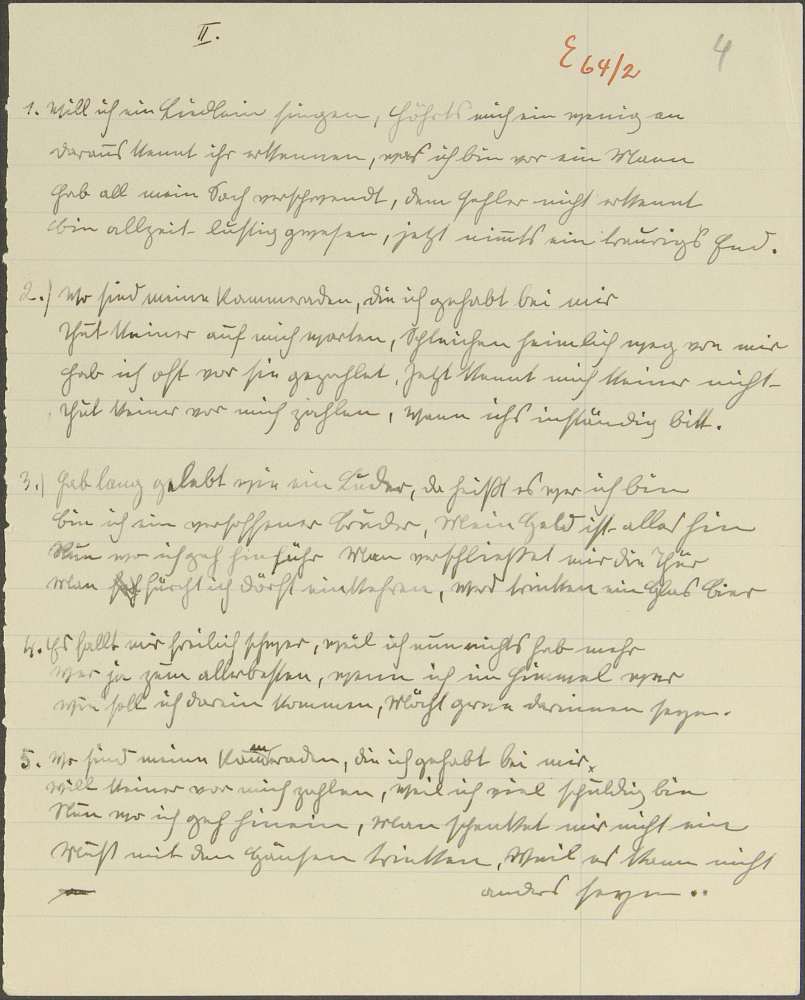 II.
E 64/2
4
1. Will ich ein Liedlein singen, höhrts mich ein wenig an
daraus kennt ihr erkennen, was ich bin vor ein Mann
hab all mein Sach verschwendt, dem Fehler nicht erkennt
bin allzeit lustig gwesen, jetzt nimts ein traurigs End.
2.) Wo sind meine Kammeraden, die ich gehabt bei mir
Thut keiner auf mich warten, schleichen heimlich weg von mir
hab ich oft vor sie gezahlet, jetzt kennt mich keiner nicht
Thut keiner vor mich zahlen, wenn ichs inständig bitt.
3.) hab lang gelebt wie ein Luder, da heißt es wer ich bin
bin ich ein versoffener Bruder, Mein Geld ist alles hin
Nun wo ich geh hinführ Man verschließet mir die Thür
Man fürcht ich dörft einkehren, und trinken ein Glas Bier
4. Es fallt mir freilich schwer, weil ich nun nichts hab mehr
wer ja zum allerbesten, wenn ich im Himmel wer
wie soll ich darein kommen, Möcht gern darinnen seyn.
5. Wo sind meine Kammeraden, die ich gehabt bei mir
will keiner vor mich zahlen, weil ich viel schuldig bin
Nun wo ich geh hinein, Man schenket mir nicht ein
Muß mit den Gänsen trinken, Weil es kann nicht
anders seyn ..